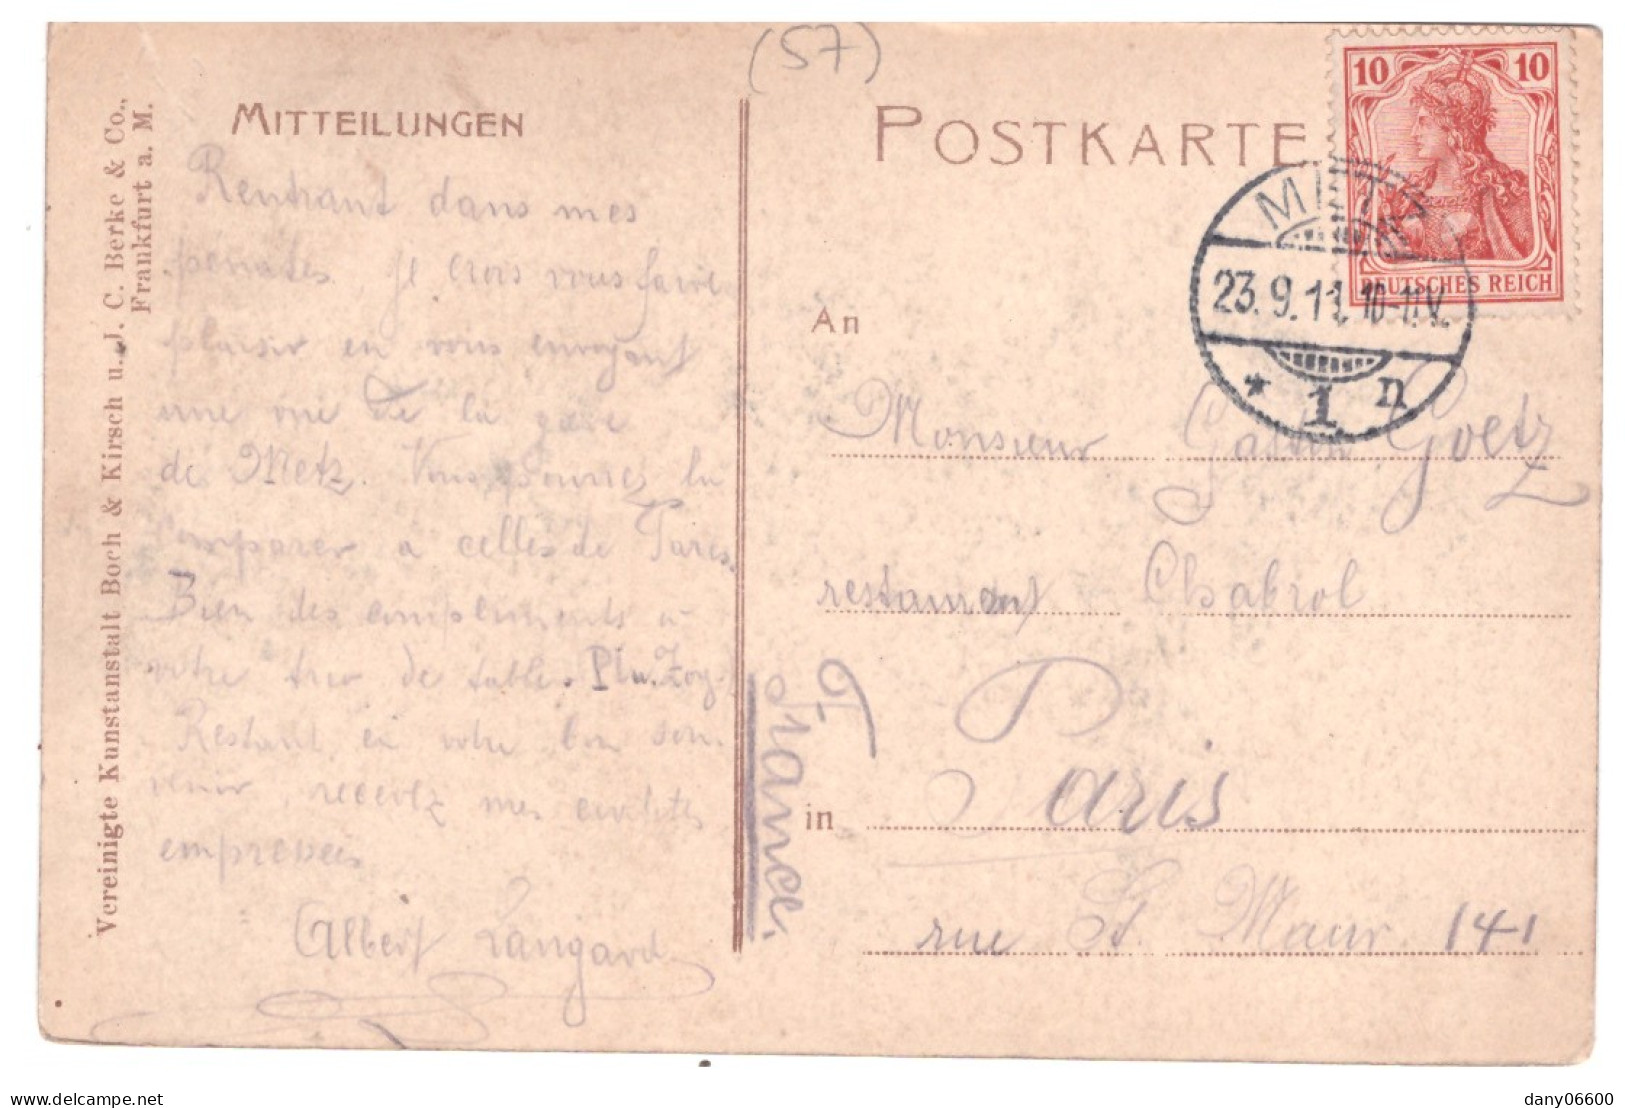 (57)
MITTEILUNGEN
POSTKARTE
10 10
DEUTSCHES REICH
METZ
23.9.11. 10-11V.
* 1 n
Vereinigte Kunstanstalt Boch & Kirsch u. J. C. Berke & Co.,
Frankfurt a. M.
Rentrant dans mes
penates je crois vous faire
plaisir en vous envoyant
une vue de la gare
de Metz. Vous pourrez la
comparer a celles de Paris.
Bien des compliments a
votre trio de table.
Restant en votre bon sou
venir, recevez mes civilités
empressées
Albert Langard
France.
An
Monsieur Gaston Goetz
restaurant Chabrol
in Paris
rue St Maur 141
dany06600